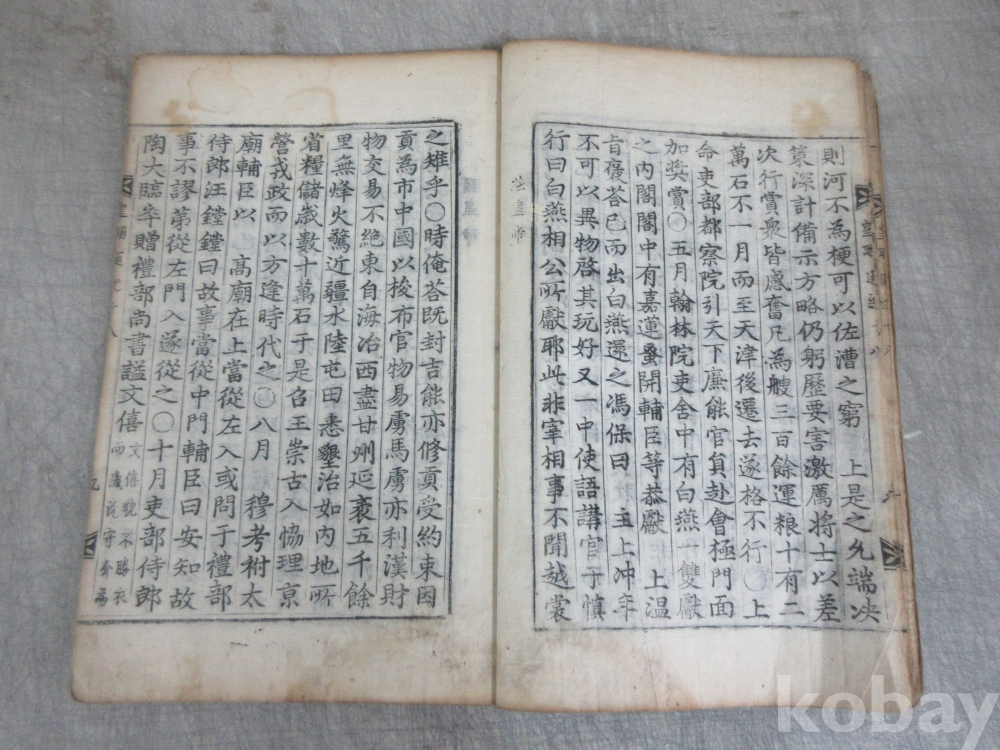 則河不為梗可以佐漕之窮　上是之允端決
策深計備示方略仍躬歷要害激厲將士以差
次行賞衆皆感奮凡為艘三百餘運粮十有二
萬石不一月而至天津後遷去遂格不行〇上
命吏部都察院引天下廉能官貟赴會極門面
加奬賞〇五月翰林院吏舍中有白燕一雙獻
之内閣閣中有嘉蓮蚤開輔臣等恭獻　上温
旨褒答已而出白燕還之馮保曰　主上冲年
不可以異物啓其玩好又一中使語講官于慎
行曰白燕相公所獻耶此非宰相事不聞越裳
之雉乎〇時俺答既封吉能亦修貢受約束因
貢為市中國以梭布官物易虜馬虜亦利漢財
物交易不絶東自海冶西盡甘州延袤五千餘
里無烽火驚近疆水陸屯田悉墾治如内地所
省糧儲歲數十萬石于是召王崇古入協理京
營戎政而以方逢時代之〇八月　穆考祔太
廟輔臣以　高廟在上當從左入或問于禮部
侍郎汪鏜鏜曰故事當從中門輔臣曰安知故
事不謬苐從左門入遂從之〇十月吏部侍郎
陶大臨卒贈禮部尚書謚文僖文僖貌不勝衣
九
kobay